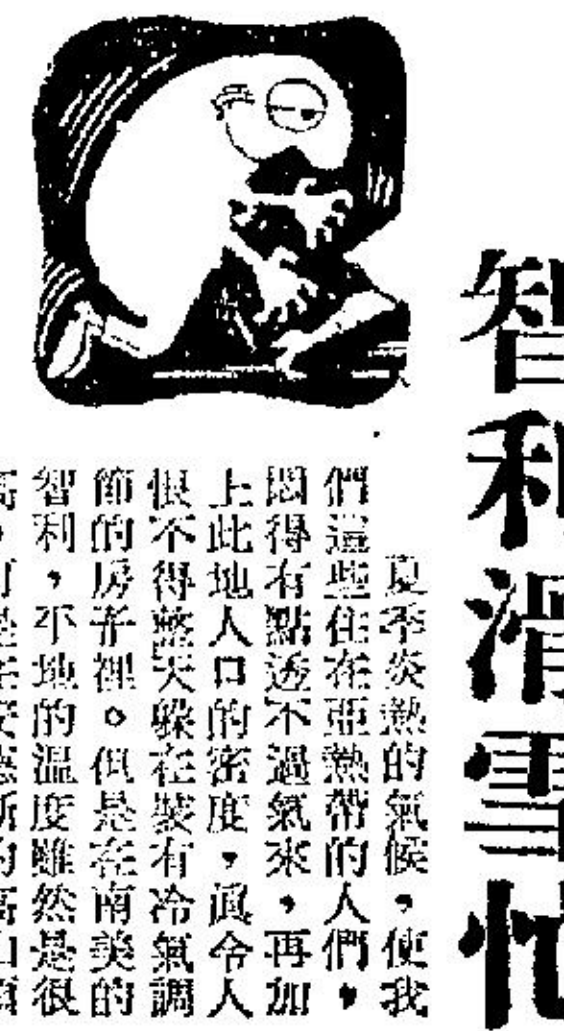 智利滑雪忙
夏季炎熱的氣候，使我
們這些住在亞熱帶的人們，
悶得有點透不過氣來，再加
上此地人口的密度，眞令人
恨不得整天躱在裝有冷氣調
節的房子裡。但是在南美的
智利，平地的溫度雖然是很